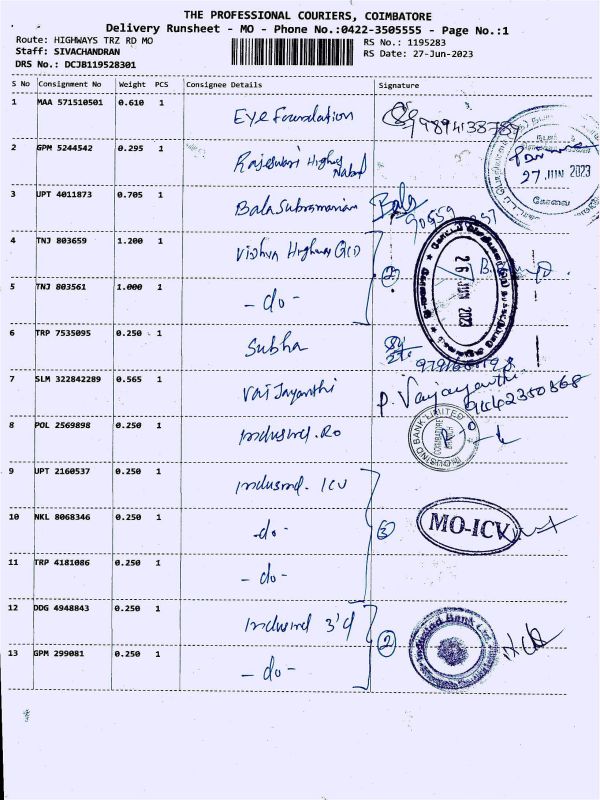 THE PROFESSIONAL COURIERS, COIMBATORE
Delivery Runsheet - MO - Phone No.:0422-3505555 - Page No.:1
Route: HIGHWAYS TRZ RD MO
RS No.: 1195283
Staff: SIVACHANDRAN
RS Date: 27-Jun-2023
DRS No.: DCJB119528301
S No Consignment No Weight PCS Consignee Details Signature
1 MAA 571510501 0.610 1 Eye Foundation
2 GPM 5244542 0.295 1 Rajeswari Highway
27 JUN 2023
கோவை
3 UPT 4011873 0.705 1 Bala Subramanian Bala
4 TNJ 803659 1.200 1 Vishva Highway 2
26 JUN 2023
5 TNJ 803561 1.000 1 - do -
6 TRP 7535095 0.250 1 Subha
7 SLM 322842289 0.565 1 Vai Jayanthi P. Vaijayanthi
8 POL 2569898 0.250 1 Indusind. Ro
INDUSIND BANK LIMITED
COIMBATORE
BRANCH
9 UPT 2160537 0.250 1 Indusind. ICU
10 NKL 8068346 0.250 1 - do - 3 MO-ICV
11 TRP 4181086 0.250 1 - do -
12 DDG 4948843 0.250 1 Indusind 2
IndusInd Bank Ltd
13 GPM 299081 0.250 1 - do -